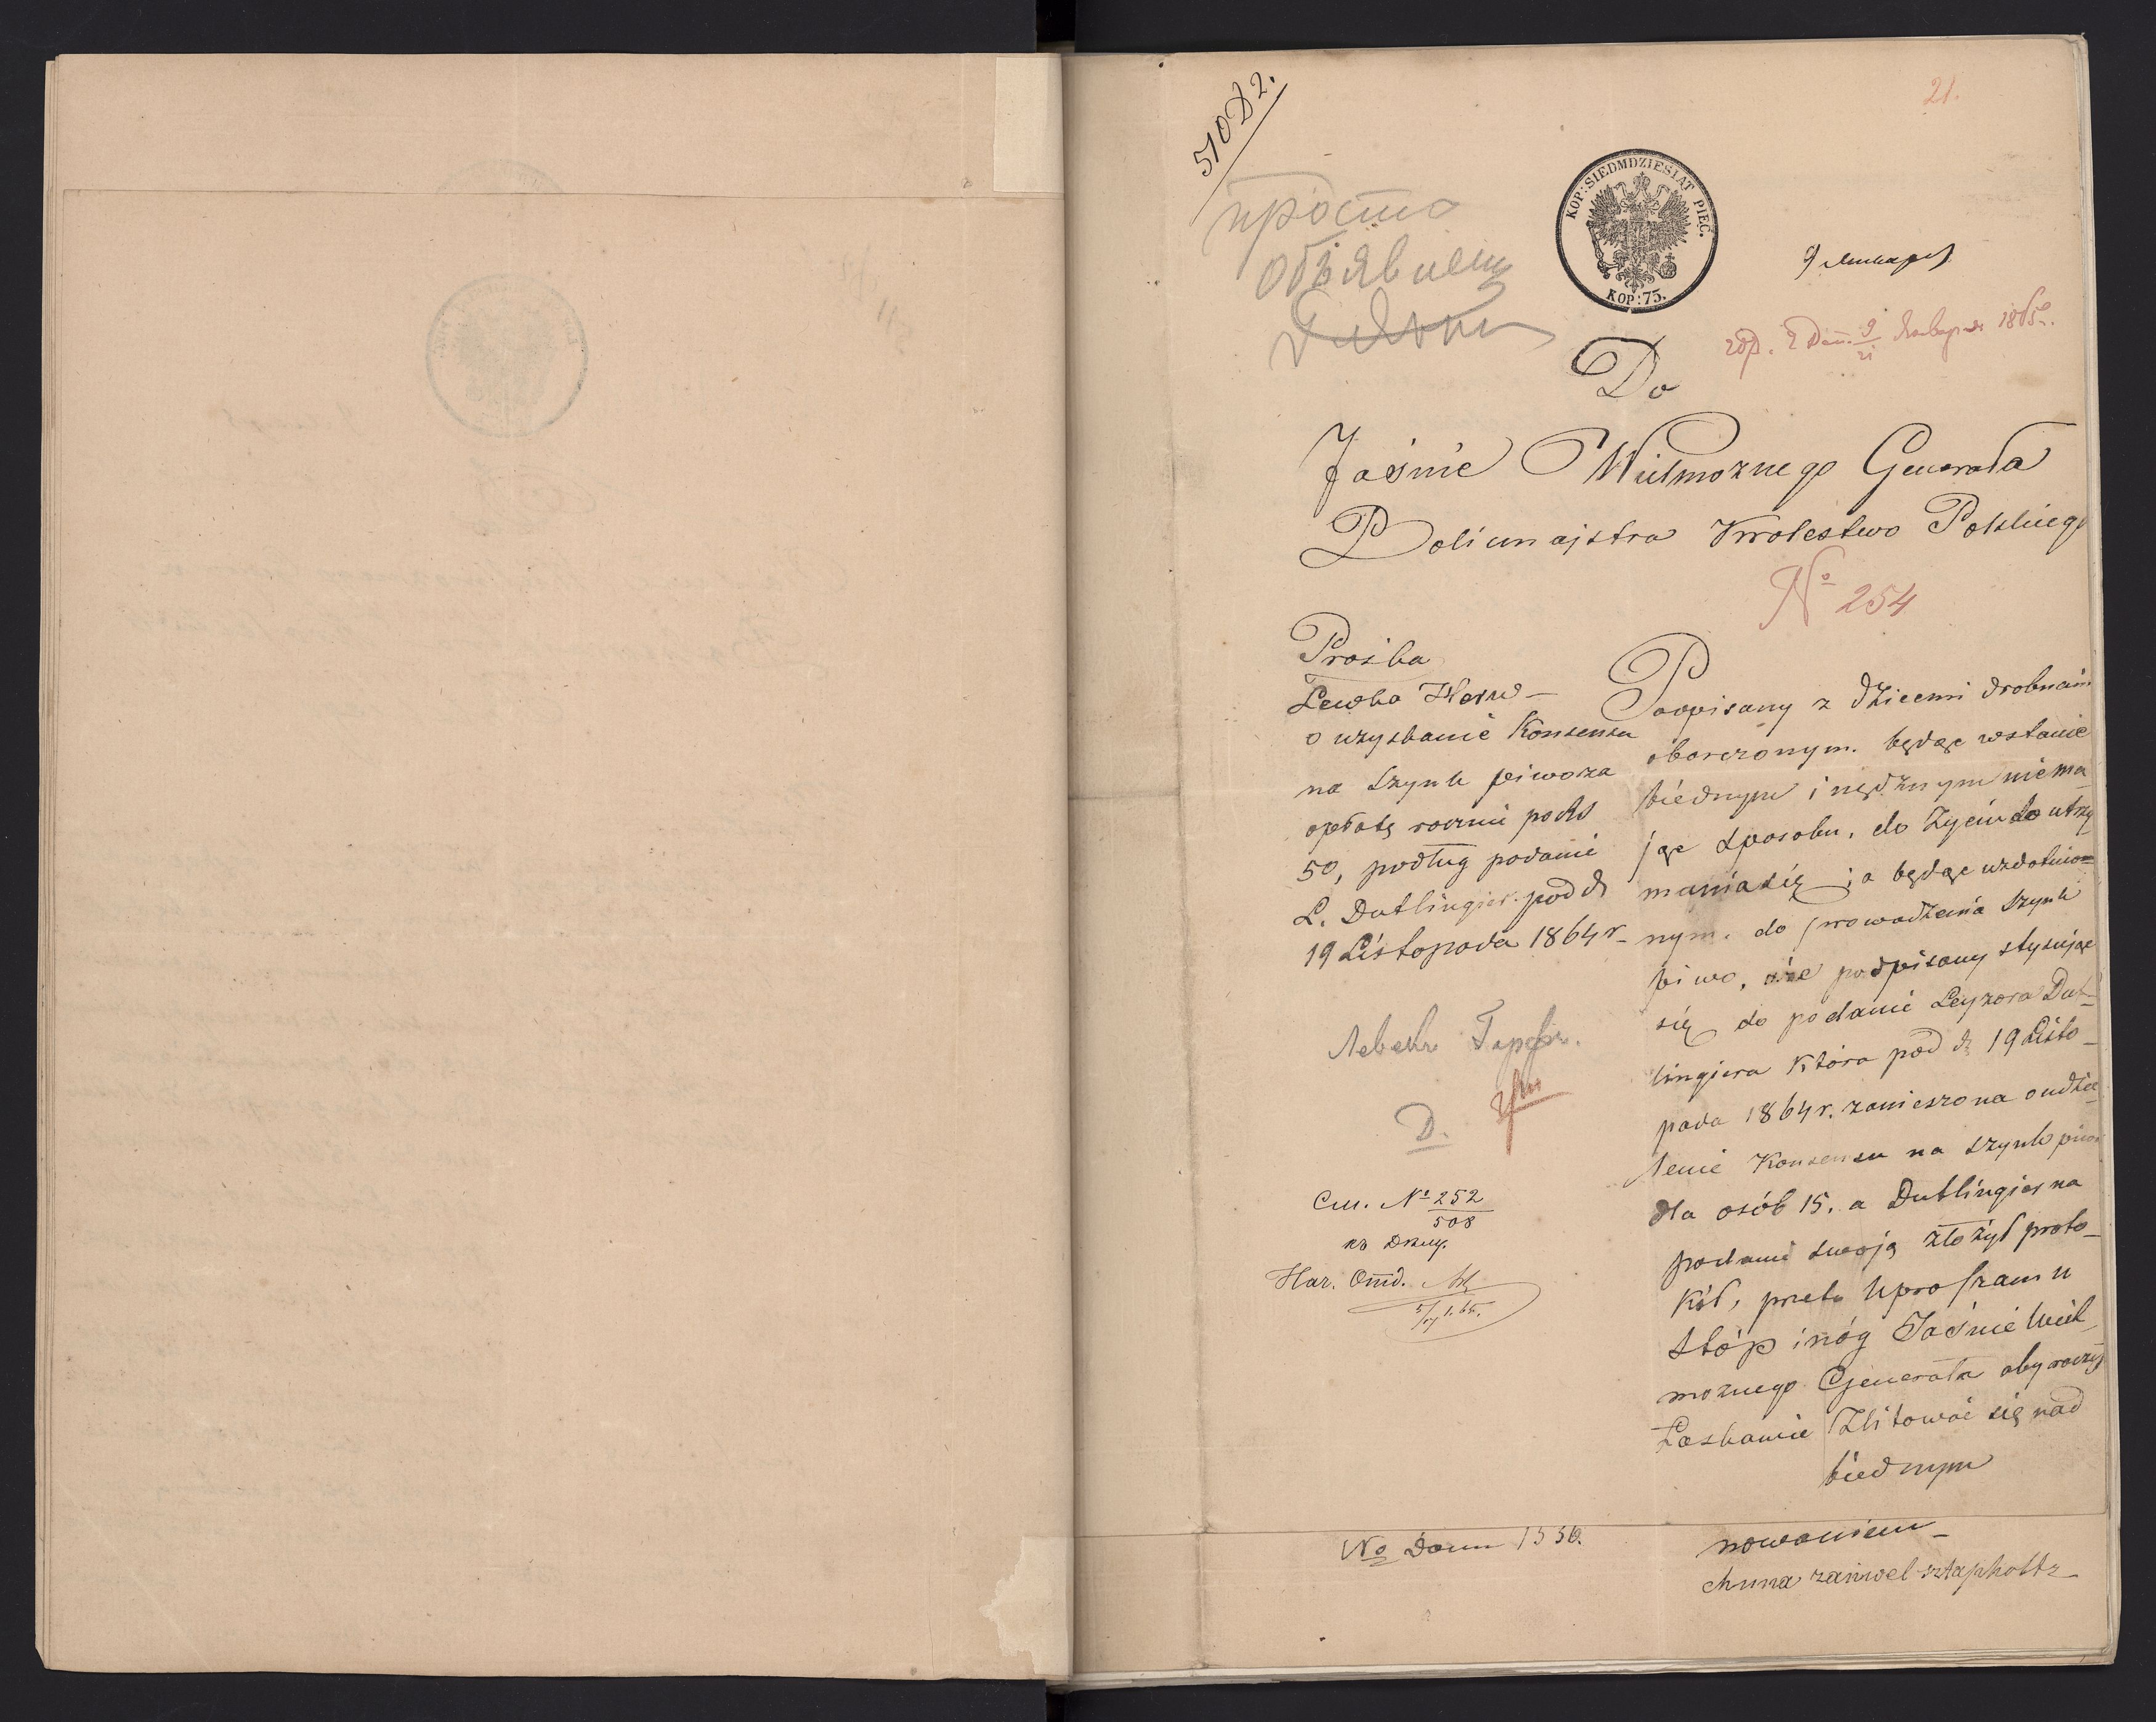 510 D 2.
21.
KOP: SIEDMDZIESIĄT PIĘĆ.
KOP: 75.
просто
9 Января
9/21 Января 1865
Do
Jaśnie Wielmożnego Generała
Policmajstra Krolestwo Polskiego
№ 254
Proźba
Lewka Harw-
o uzyskanie Konsensu
na szynk piwo za
opłatę rocznie po Rs
50, podług podanie
L. Dutlingier. pod d
19 Listopada 1864 r-
Podpisany z dziecmi drobnaim
obarczonym. będąc wstanie
biednym i nędznym niema
jąc sposobu. do życia do utrzy
mania się ; a będąc uzdolnio=
nym. do prowadzenia szynk
piwo, podpisany stysując
się do podanie Leyzora Dut-
lingiera Która pod d 19 Listo-
pada 1864 r. zanieszona oudzie
lenie Konsensu na szynk piwo
dla osób 15. a Dutlingier na
podanie swoją złożył proto-
Kół, przeto Upraszam u
stóp i nóg Jaśnie Wiel-
możnego Generała aby raczył
Łaskawie Zlitować się nad
biednym
Левекъ
D.
См. № 252/508
Нач. Отд.
5/1.65.
No Domu 1556.
nowaniem-
chuna zaniwel sztapholtz-